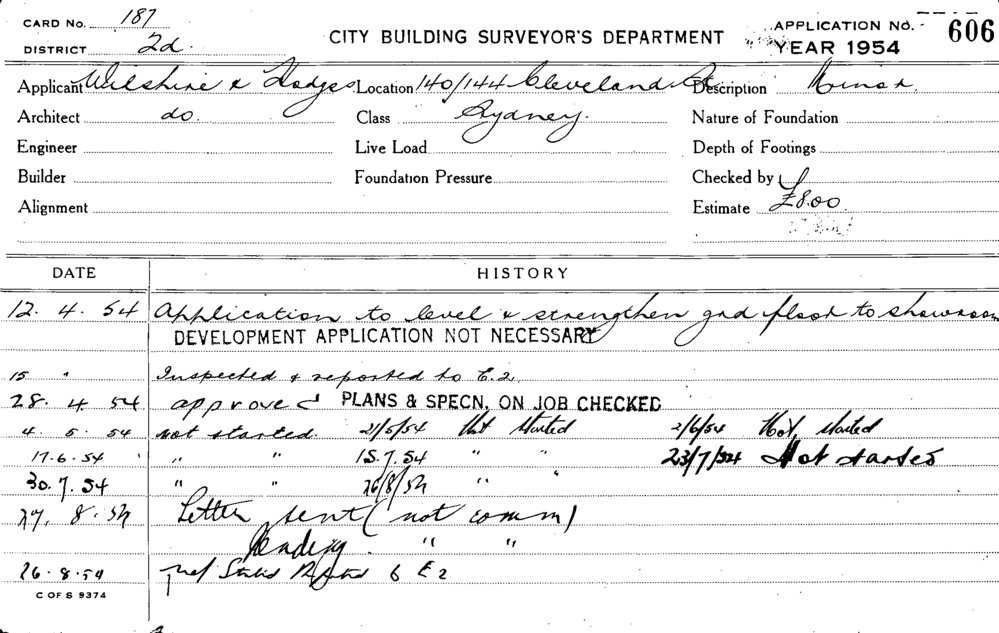 CARD NO. 187
DISTRICT 2d.
CITY BUILDING SURVEYOR'S DEPARTMENT
APPLICATION NO. 606
YEAR 1954
Applicant Wilshire & Hodges Location 140/144 Cleveland St Description Minor
Architect do. Class Sydney. Nature of Foundation
Engineer Live Load Depth of Footings
Builder Foundation Pressure Checked by
Alignment Estimate £800.
DATE HISTORY
12. 4. 54 Application to level & strengthen grd floor to showroom
DEVELOPMENT APPLICATION NOT NECESSARY
15 " Inspected & reported to E.2.
28. 4. 54 approved PLANS & SPECN. ON JOB CHECKED
4. 5. 54 not started. 21/5/54 Not Started 2/6/54 Not started
17.6.54 " " 15.7.54 " " 23/7/54 Not started
30.7.54 " " 26/8/54 " "
27. 8. 54 Letter sent (not comm)
Pending. " "
26.8.54 Not Started Reported to E2
C OF S 9374